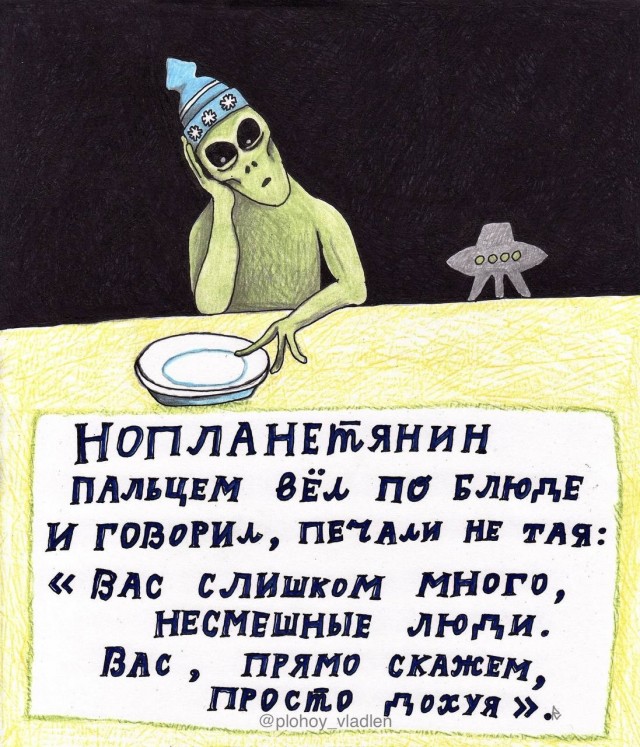 НОПЛАНЕТЯНИН
ПАЛЬЦЕМ ВЁЛ ПО БЛЮДЕ
И ГОВОРИЛ, ПЕЧАЛИ НЕ ТАЯ:
«ВАС СЛИШКОМ МНОГО,
НЕСМЕШНЫЕ ЛЮДИ.
ВАС, ПРЯМО СКАЖЕМ,
ПРОСТО ДОХУЯ».
@plohoy_vladlen